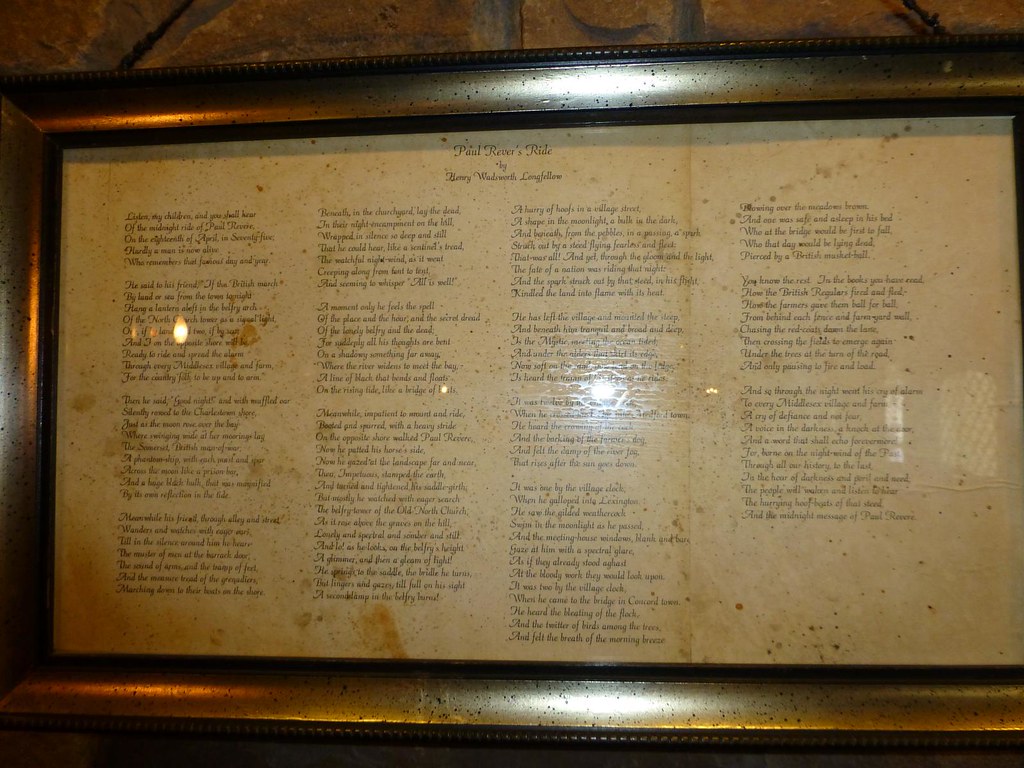 Paul Rever's Ride
by
Henry Wadsworth Longfellow
Listen, my children, and you shall hear
Of the midnight ride of Paul Revere,
On the eighteenth of April, in Seventy-five;
Hardly a man is now alive
Who remembers that famous day and year.
He said to his friend, "If the British march
By land or sea from the town tonight
Hang a lantern aloft in the belfry arch
Of the North Church tower as a signal light,
if by land two, if by sea
And I on the opposite shore will
Ready to ride and spread the alarm
Through every Middlesex village and farm,
For the country folk to be up and to arm."
Then he said, "Good night!" and with muffled oar
Silently rowed to the Charlestown shore,
Just as the moon rose over the bay
Where swinging wide at her moorings lay
The Somerset, British man-of-war;
A phantom ship, with each mast and spar
Across the moon like a prison-bar,
And a huge black hulk, that was magnified
By its own reflection in the tide.
Meanwhile his friend, through alley and street
Wanders and watches with eager ears,
Till in the silence around him he hears
The muster of men at the barrack door,
The sound of arms, and the tramp of feet,
And the measure tread of the grenadiers,
Marching down to their boats on the shore.
Beneath, in the churchyard, lay the dead,
In their night-encampment on the hill,
Wrapped in silence so deep and still
That he could hear, like a sentinel's tread,
The watchful night-wind, as it went
Creeping along from tent to tent,
And seeming to whisper "All is well!"
A moment only he feels the spell
Of the place and the hour, and the secret dread
Of the lonely belfry and the dead;
For suddenly all his thoughts are bent
On a shadowy something far away,
Where the river widens to meet the bay, -
A line of black that bends and floats
On the rising tide, like a bridge of boats.
Meanwhile, impatient to mount and ride,
Booted and spurred, with a heavy stride
On the opposite shore walked Paul Revere,
Now he patted his horse's side,
Now he gazed at the landscape far and near,
Then, Impetuous, stamped the earth,
And turned and tightened his saddle-girth;
But mostly he watched with eager search
The belfry-tower of the Old North Church,
As it rose above the graves on the hill,
Lonely and spectral and somber and still
And lo! as he looks, on the belfry's height
A glimmer, and then a gleam of light!
He springs to the saddle, the bridle he turns,
But lingers and gazes, till full on his sight
A second lamp in the belfry burns!
A hurry of hoofs in a village street,
A shape in the moonlight, a bulk in the dark,
And beneath, from the pebbles, in a passing, a spark
Struck out by a steed flying fearless and fleet;
That was all! And yet, through the gloom and the light,
The fate of a nation was riding that night;
And the spark struck out by that steed, in his flight,
Kindled the land into flame with its heat.
He has left the village and mounted the steep,
And beneath him tranquil and broad and deep,
Is the Mystic, meeting the ocean tides;
And under the alders that skirt its edge,
Now soft on the sand, on the ledge,
Is heard the tramp of as he rides.
It was twelve by
When he crossed town.
He heard the crowing of
And the barking of the farmer's dog,
And felt the damp of the river fog,
That rises after the sun goes down.
It was one by the village clock,
When he galloped into Lexington.
He saw the gilded weathercock
Swim in the moonlight as he passed,
And the meeting-house windows, blank and bare
Gaze at him with a spectral glare,
As if they already stood aghast
At the bloody work they would look upon.
It was two by the village clock,
When he came to the bridge in Concord town.
He heard the bleating of the flock,
And the twitter of birds among the trees,
And felt the breath of the morning breeze
Blowing over the meadows brown.
And one was safe and asleep in his bed
Who at the bridge would be first to fall,
Who that day would be lying dead,
Pierced by a British musket-ball.
You know the rest. In the books you have read,
How the British Regulars fired and fled, -
How the farmers gave them ball for ball,
From behind each fence and farm-yard wall,
Chasing the red-coats down the lane,
Then crossing the fields to emerge again
Under the trees at the turn of the road,
And only pausing to fire and load.
And so through the night went his cry of alarm
To every Middlesex village and farm,
A cry of defiance and not fear,
A voice in the darkness, a knock at the door,
And a word that shall echo forevermore!
For, borne on the night-wind of the Past,
Through all our history, to the last,
In the hour of darkness and peril and need,
The people will waken and listen to hear
The hurrying hoof-beats of that steed,
And the midnight message of Paul Revere.